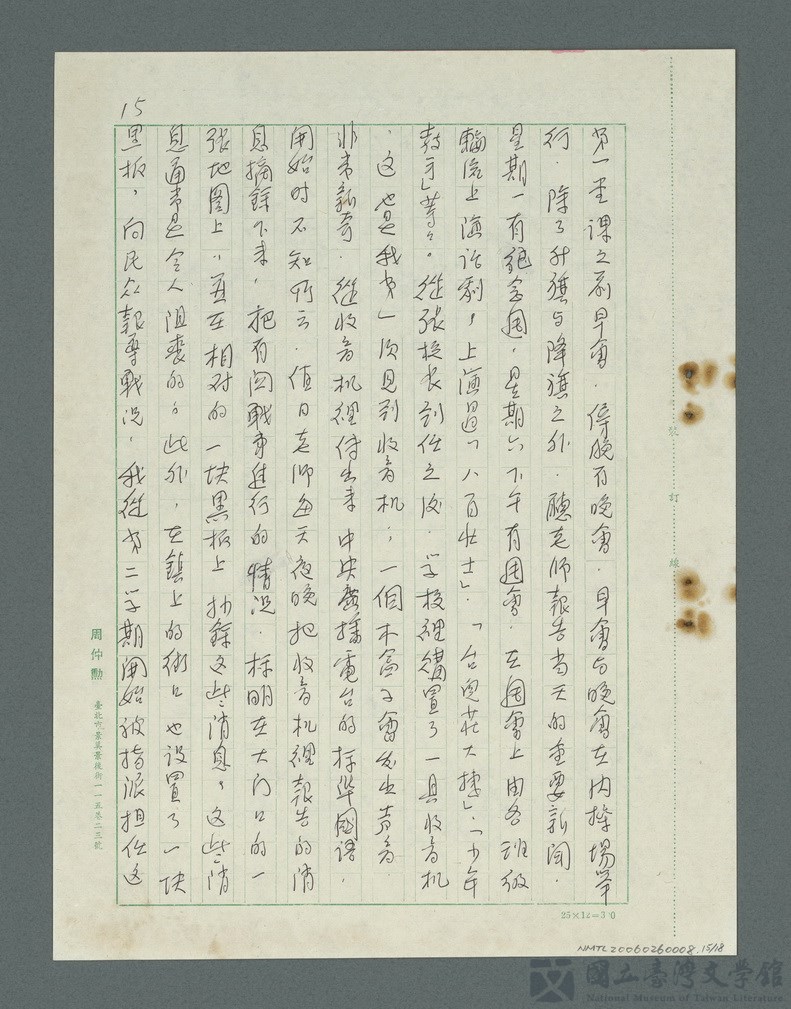 15
第一堂课之前早會．傍晚有晚會．早會与晚會在内操場举
行．除了升旗与降旗之外．聽老师報告当天的重要新闻．
星期一有紀念週，星期六下午有週會．在週會上由各班級
輪流上演话剧，上演過「八百壮士」．「台兒莊大捷」．「少年
教子」等々。從張校长到任之後．学校裡購置了一具收音机
．这也是我第一次見到收音机；一個木盒子會发出声音．
非常新奇．從收音机裡传出来中央廣播電台的标準國语．
開始时不知所云．值日老师每天夜晚把收音机裡報告的消
息摘錄下来，把有図戰事進行的情況．标明在大门口的一
張地圖上，並在相对的一块黑板上抄錄这些消息。这些消
息通常是令人阻喪的。此外，在鎮上的街口也设置了一块
黑板，向民众報導戰況，我從第二学期開始被指派担任这
周仲勳
臺北市景美景後街一一五巷二三號
25×12=300
裝訂線
NMTL20060260008.15/18
國立臺灣文學館
National Museum of Taiwan Literature